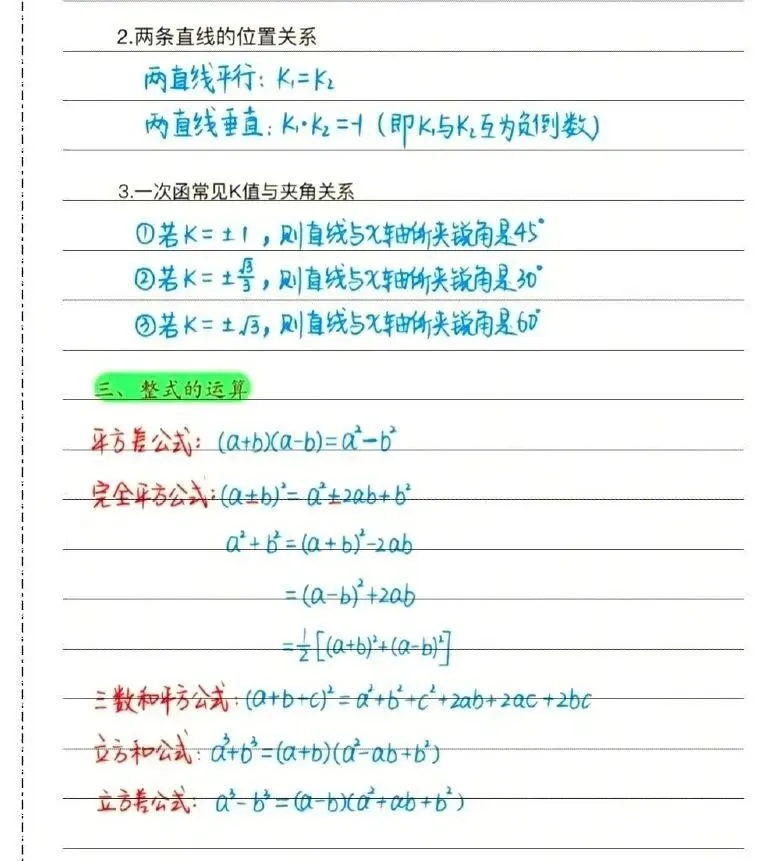 2.两条直线的位置关系
两直线平行：K₁=K₂
两直线垂直：K₁·K₂=-1（即K₁与K₂互为负倒数）
3.一次函常见K值与夹角关系
①若K=±1，则直线与x轴所夹锐角是45°
②若K=±√3/3，则直线与x轴所夹锐角是30°
③若K=±√3，则直线与x轴所夹锐角是60°
三、整式的运算
平方差公式：(a+b)(a-b)=a²-b²
完全平方公式：(a±b)²=a²±2ab+b²
a²+b²=(a+b)²-2ab
=(a-b)²+2ab
=½[(a+b)²+(a-b)²]
三数和平方公式：(a+b+c)²=a²+b²+c²+2ab+2ac+2bc
立方和公式：a³+b³=(a+b)(a²-ab+b²)
立方差公式：a³-b³=(a-b)(a²+ab+b²)